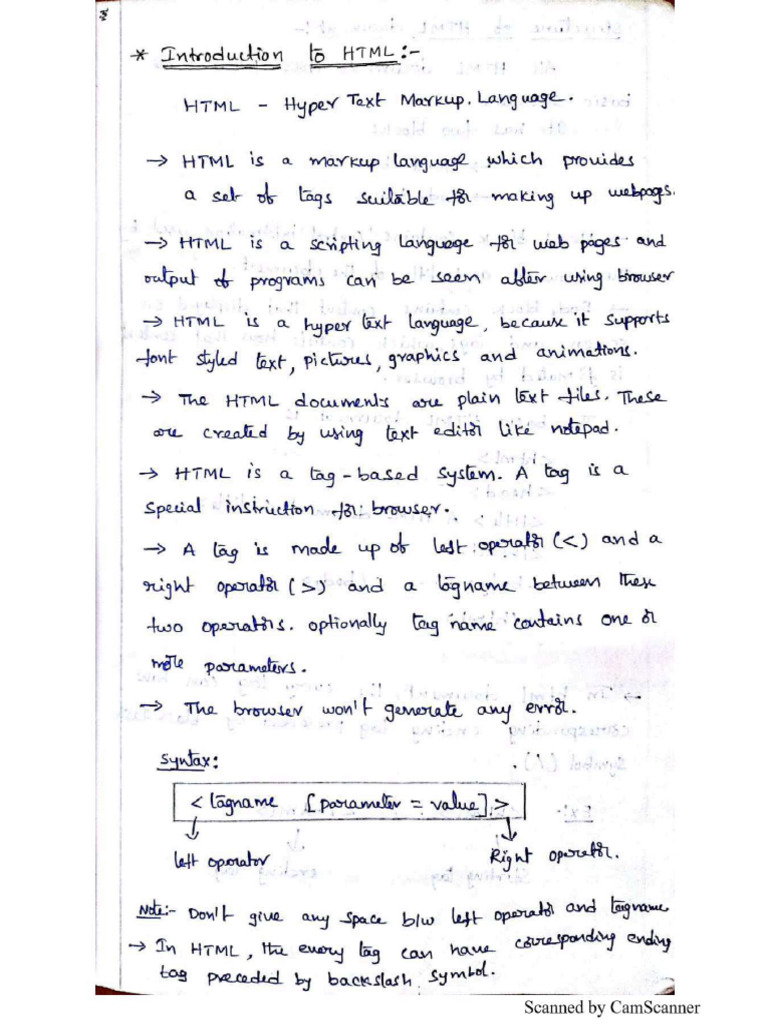 * Introduction to HTML:-
HTML - Hyper Text Markup. Language.
→ HTML is a markup language which provides
a set of tags suitable for making up webpages.
→ HTML is a scripting language for web pages and
output of programs can be seen after using browser
→ HTML is a hyper text language, because it supports
font styled text, pictures, graphics and animations.
→ The HTML documents are plain text files. These
are created by using text editor like notepad.
→ HTML is a tag-based system. A tag is a
special instruction for browser.
→ A tag is made up of left operator (<) and a
right operator (>) and a tagname between these
two operators. optionally tag name contains one or
more parameters.
→ The browser won't generate any error.
Syntax:
< tagname [parameter = value] >
left operator Right operator.
Note:- Don't give any space b/w left operator and tagname
→ In HTML, the every tag can have corresponding ending
tag preceded by backslash symbol.
Scanned by CamScanner